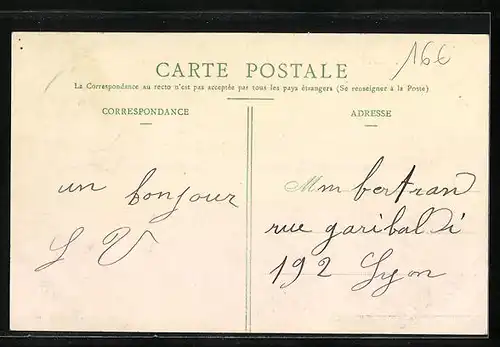 166
CARTE POSTALE
La Correspondance au recto n'est pas acceptée par tous les pays étrangers (Se renseigner à la Poste)
CORRESPONDANCE
un bonjour
L V
ADRESSE
Mm bertran
rue garibaldi
192 Lyon